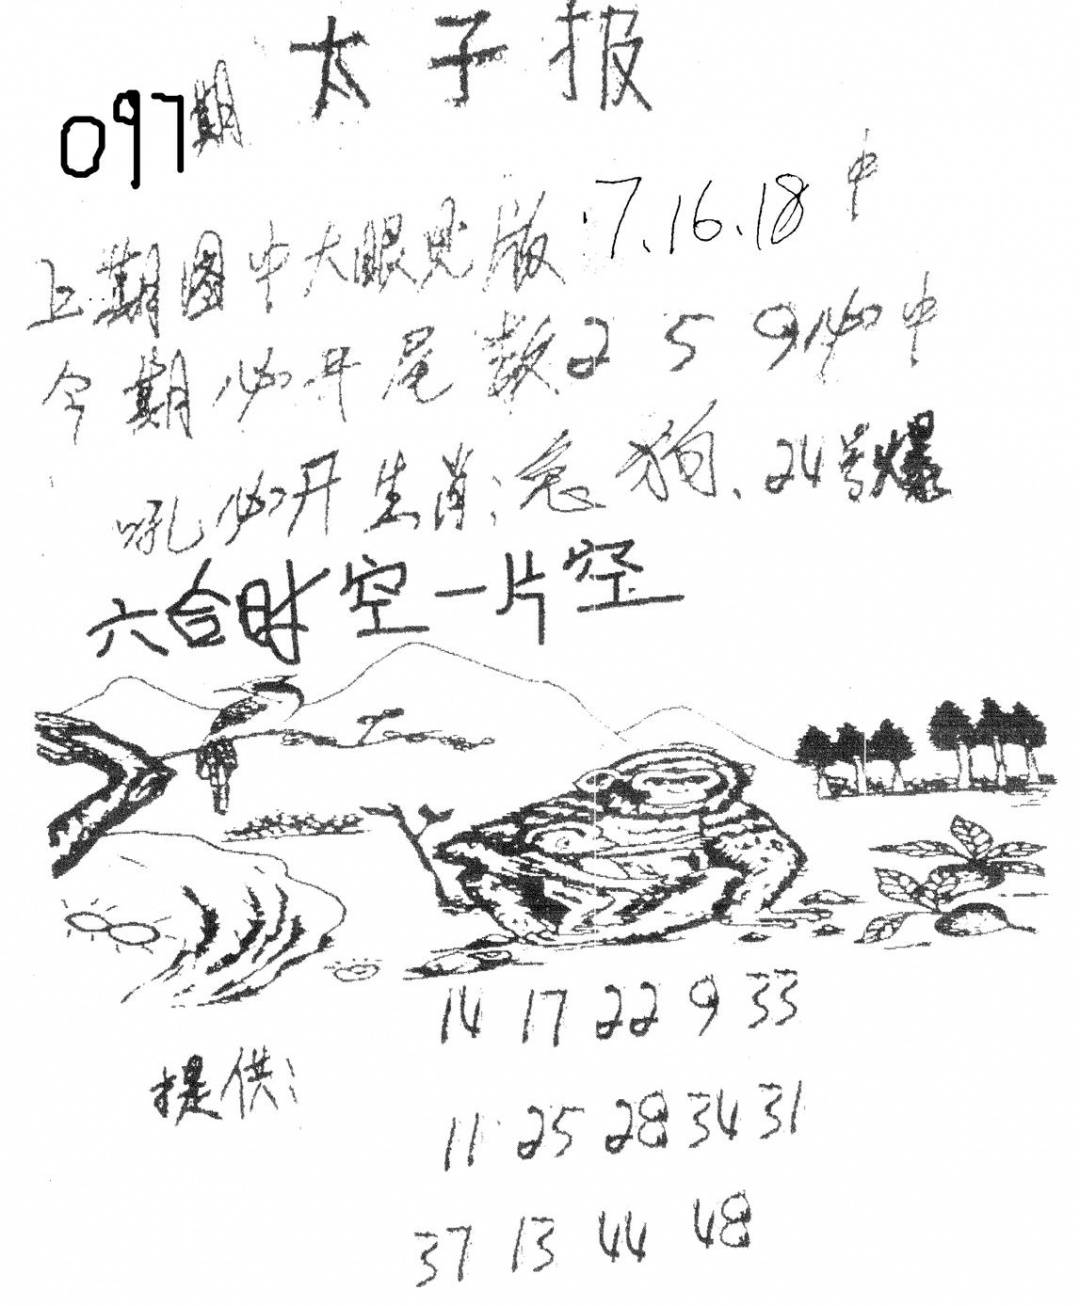 太子报
097期
上期图中大眼见版.7.16.18中
今期必开尾数2 5 9必中
吼必开生肖:兔狗、24号爆
六合时空一片空
14 17 22 9 33
提供:
11 25 28 34 31
37 13 44 48